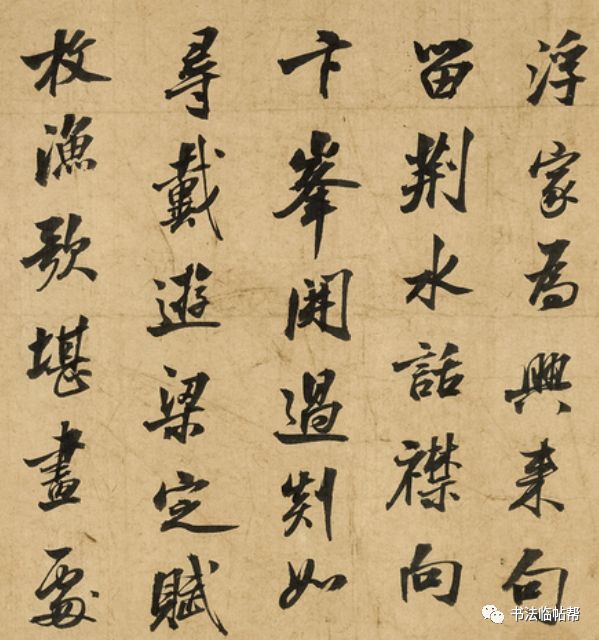 浮家為興来句
留荆水話襟向
卞峯開過剡如
尋戴遊梁定賦
枚漁歌堪畫處
书法临帖帮